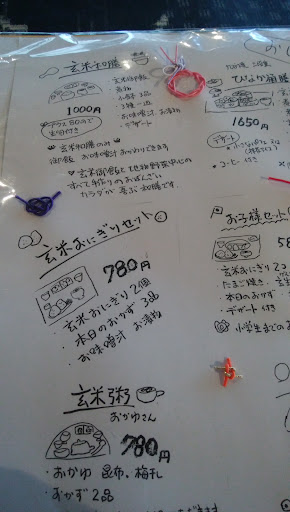 玄米和膳
・玄米御飯
・煮物
・小鉢 3品
・お味噌汁、お漬物
・デザート
1000円
プラス80円で
玄米和膳のみ
御飯 お味噌汁 おかわりできます
♥玄米御飯と地物野菜中心の
すべて手作りのおばんざい
カラダが喜ぶ和膳です。
玄米おにぎりセット
780円
・玄米おにぎり2個
・本日のおかず 3品
・お味噌汁 お漬物
玄米粥
おかゆさん
780円
・おかゆ 昆布、梅干し
・おかず 2品
ひなか御膳
1650円
デザート
・コーヒー付き
お子様セット
玄米おにぎり 2コ
・たまご焼き
・本日のおかず
・デザート付き
小学生までのお